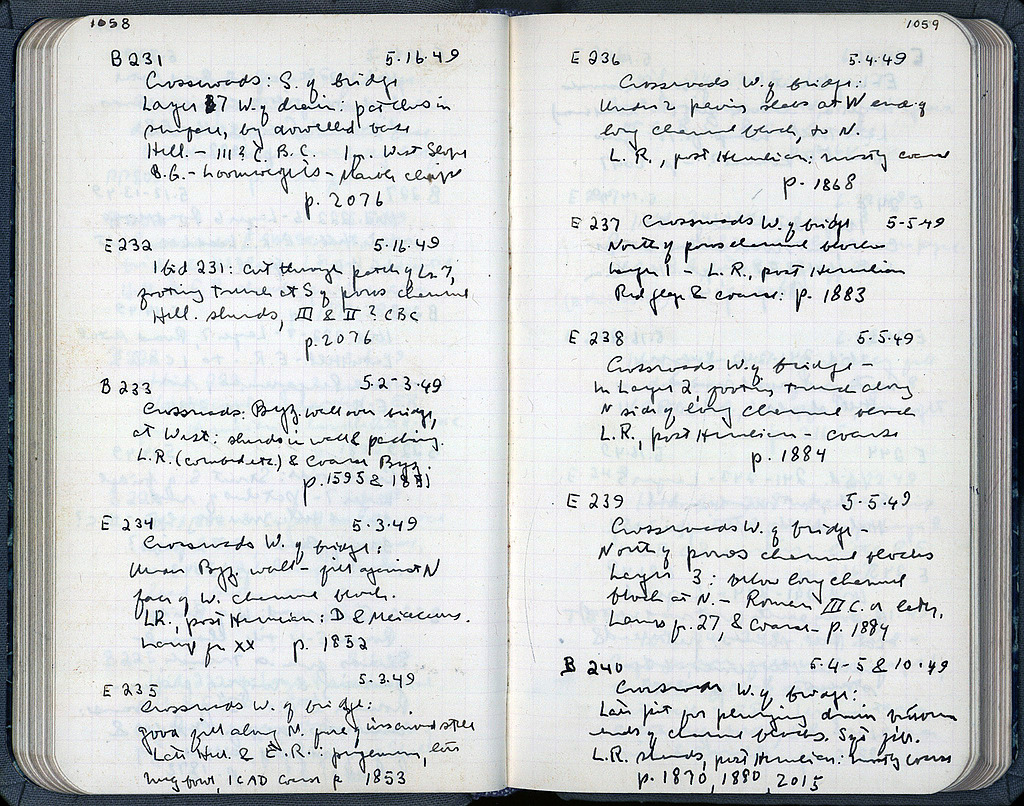 1058
B 231 5.16.49
Crossroads: S. of bridge
Layer 7 W. of drain: patches in
surface, by dowelled base
Hell. - III? C. B.C. 1 West Slope
B.G. -
p. 2076
E 232 5.16.49
Ibid 231: cut through patch of La 7,
footing trench at S of poros channel
Hell. sherds, III & II? C BC
p. 2076
B 233 5.2-3.49
Crossroads: Byz. wall over bridge,
at West: sherds in wall & packing.
L.R. (combed etc.) & Coarse Byz.
p. 1595 &
E 234 5.3.49
Crossroads W. of bridge:
Under Byz wall - fill against N
face of W. channel block.
L.R., post Herulian:
Lamp fr XX p. 1852
E 235 5.3.49
Crossroads W. of bridge:
good fill along N. face
Late Hell. & E.R.:
1 C AD coarse p 1853
1059
E 236 5.4.49
Crossroads W. of bridge:
Under 2 paving slabs at W end of
long channel block, to N.
L. R., post Herulian: mostly coarse
p. 1868
E 237 Crossroads W. of bridge 5-5-49
North of poros channel blocks
Layer 1 - L. R., post Herulian
Red glaze & coarse: p. 1883
E 238 5.5.49
Crossroads W. of bridge -
In Layer 2, footing trench along
N side of long channel block
L.R., post Herulian - coarse
p. 1884
E 239 5.5.49
Crossroads W. of bridge.
North of poros channel blocks
Layer 3: below long channel
block at N. - Roman III C. or later,
Lamp fr. 27, & coarse - p. 1884
B 240 5.4-5 & 10.49
Crossroads W. of bridge:
Late pit for plunging drain between
ends of channel blocks.
L.R. sherds, post Herulian: mostly coarse
p. 1870, 1880, 2015